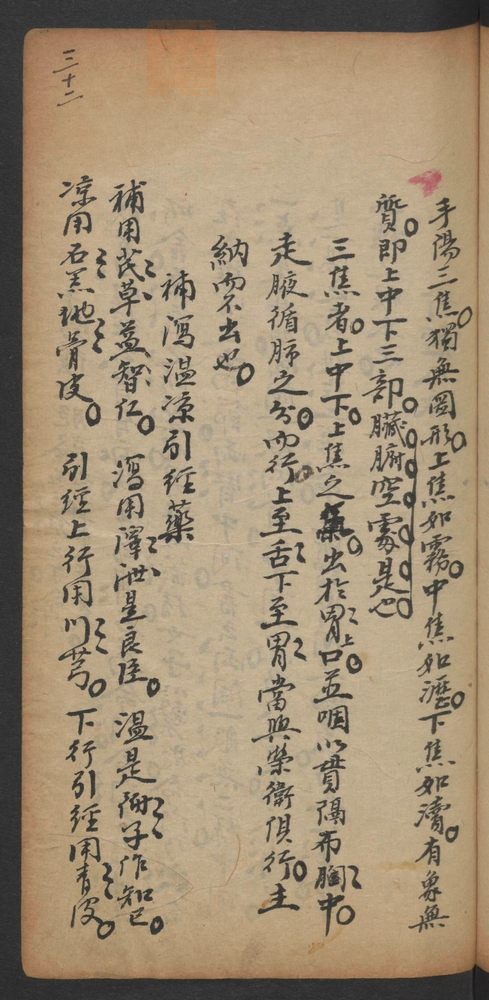 三十二
手陽三焦。獨無圖形。上焦如霧。中焦如瀝。下焦如瀆。有象無
質。即上中下三部。臟腑空處是也
三焦者。上中下。上焦之氣。出於胃上口。並咽以貫隔布胸中。
走腋循肺之分而行。上至舌下至胃當與榮衛俱行。主
納而不出也。
補瀉溫凉引經藥
補用芪草益智仁。瀉用澤泄是良臣。溫是附子作知己。
凉用石羔地骨皮。引經上行用川芎。下行引經用青皮。